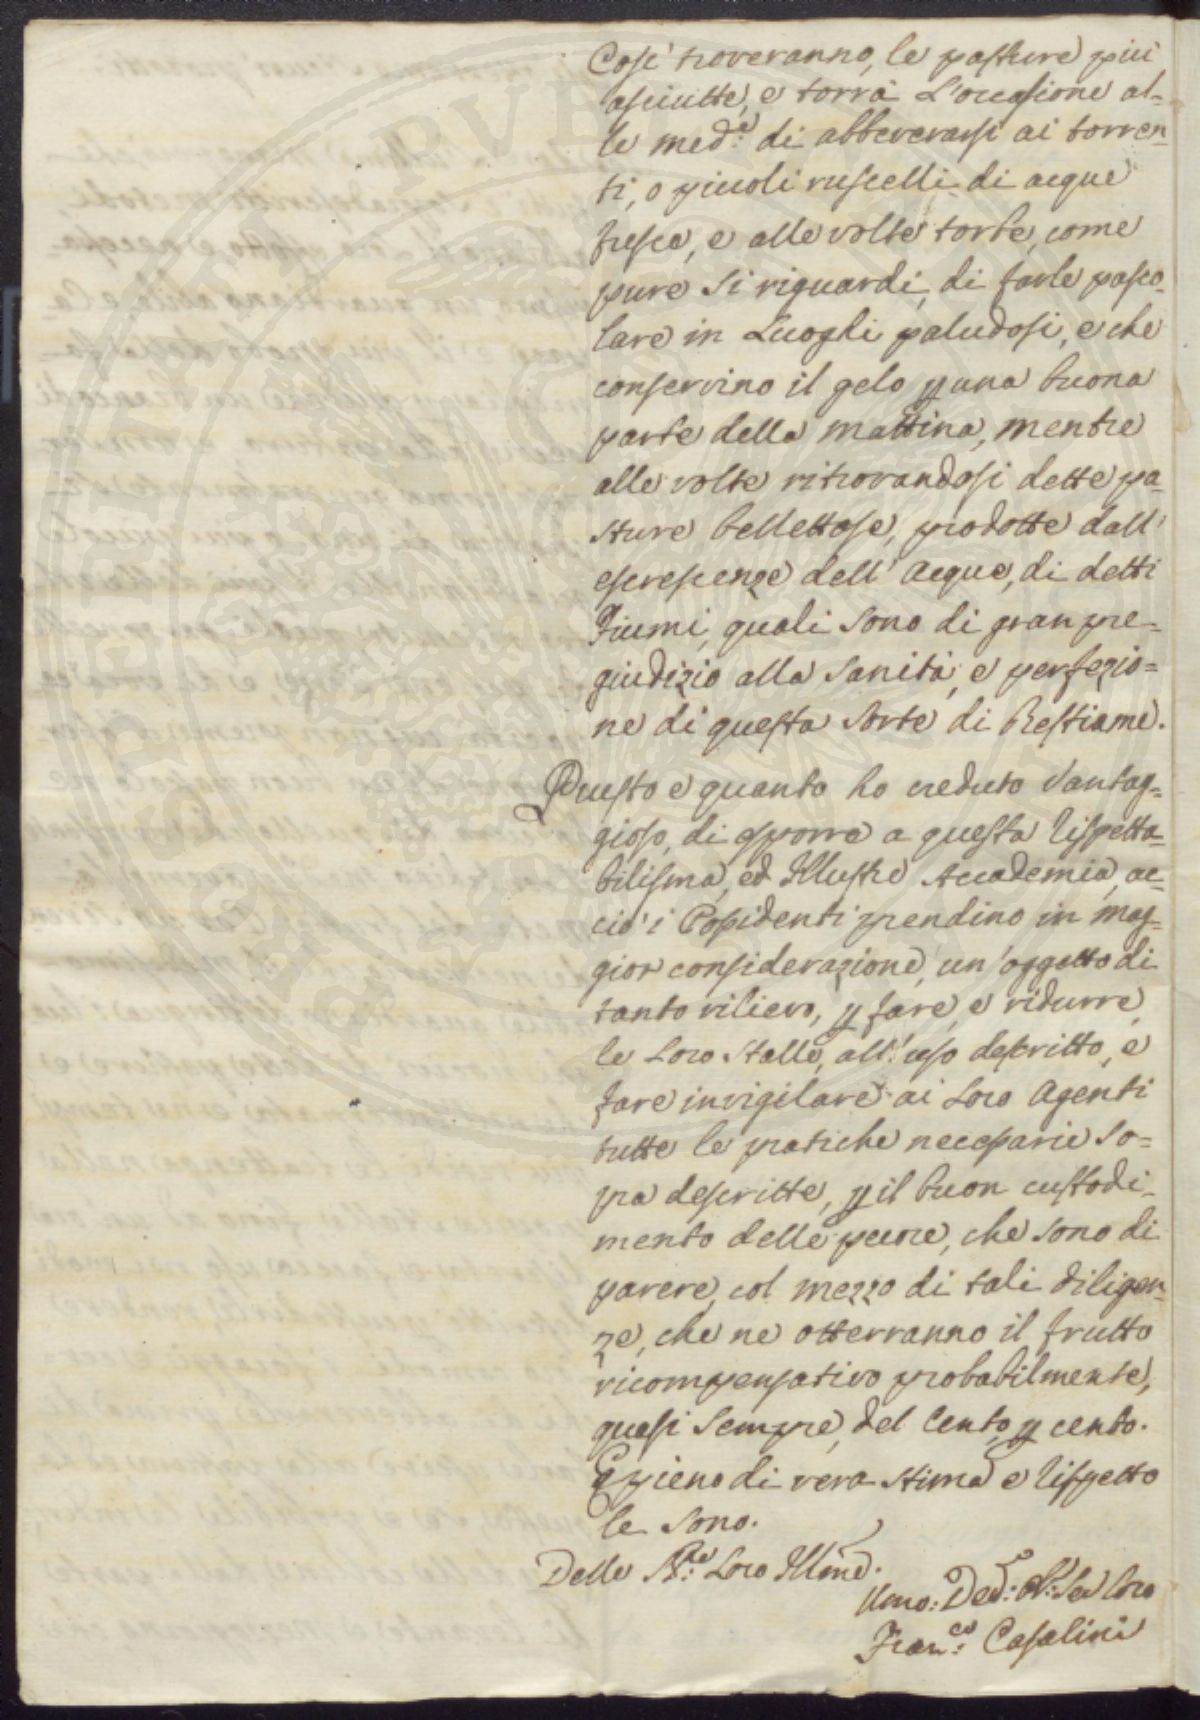 Così troveranno, le pasture più
asciutte, e torrà L'occasione al=
le med:e di abbeverarsi ai torren=
ti, o piccoli ruscelli di acque
fresce, e alle volte torbe, come
pure Si riguardi, di farle pasco=
lare in Luoghi paludosi, e che
conservino il gelo p una buona
parte della mattina, mentre
alle volte ritrovandosi dette pa=
sture bellettose, prodotte dall'
escrescenze dell' Acque, di detti
Fiumi, quali sono di gran pre=
giudizio alla Sanità, e perfezio=
ne di questa Sorte di Bestiame.
Questo e quanto ho creduto Vantag=
gioso, di esporre a questa Rispetta=
bilisma, ed Illustre Accademia, ac=
ciò i Possidenti prendino in mag=
gior considerazione, un'oggetto di
tanto rilievo, p fare, e ridurre,
le Loro Stalle, all'uso descritto, e
fare invigilare ai Loro Agenti
tutte le pratiche necessarie So=
pra descritte, p il buon custodi=
mento delle pecore, che sono di
parere, col mezzo di tali diligen=
ze, che ne otterranno il frutto
ricompensativo probabilmente,
quasi Sempre, del Cento p cento.
E pieno di vera Stima e Rispetto
le Sono.
Delle Loro Illme.
Umo: Loro
Fran:co Casalini